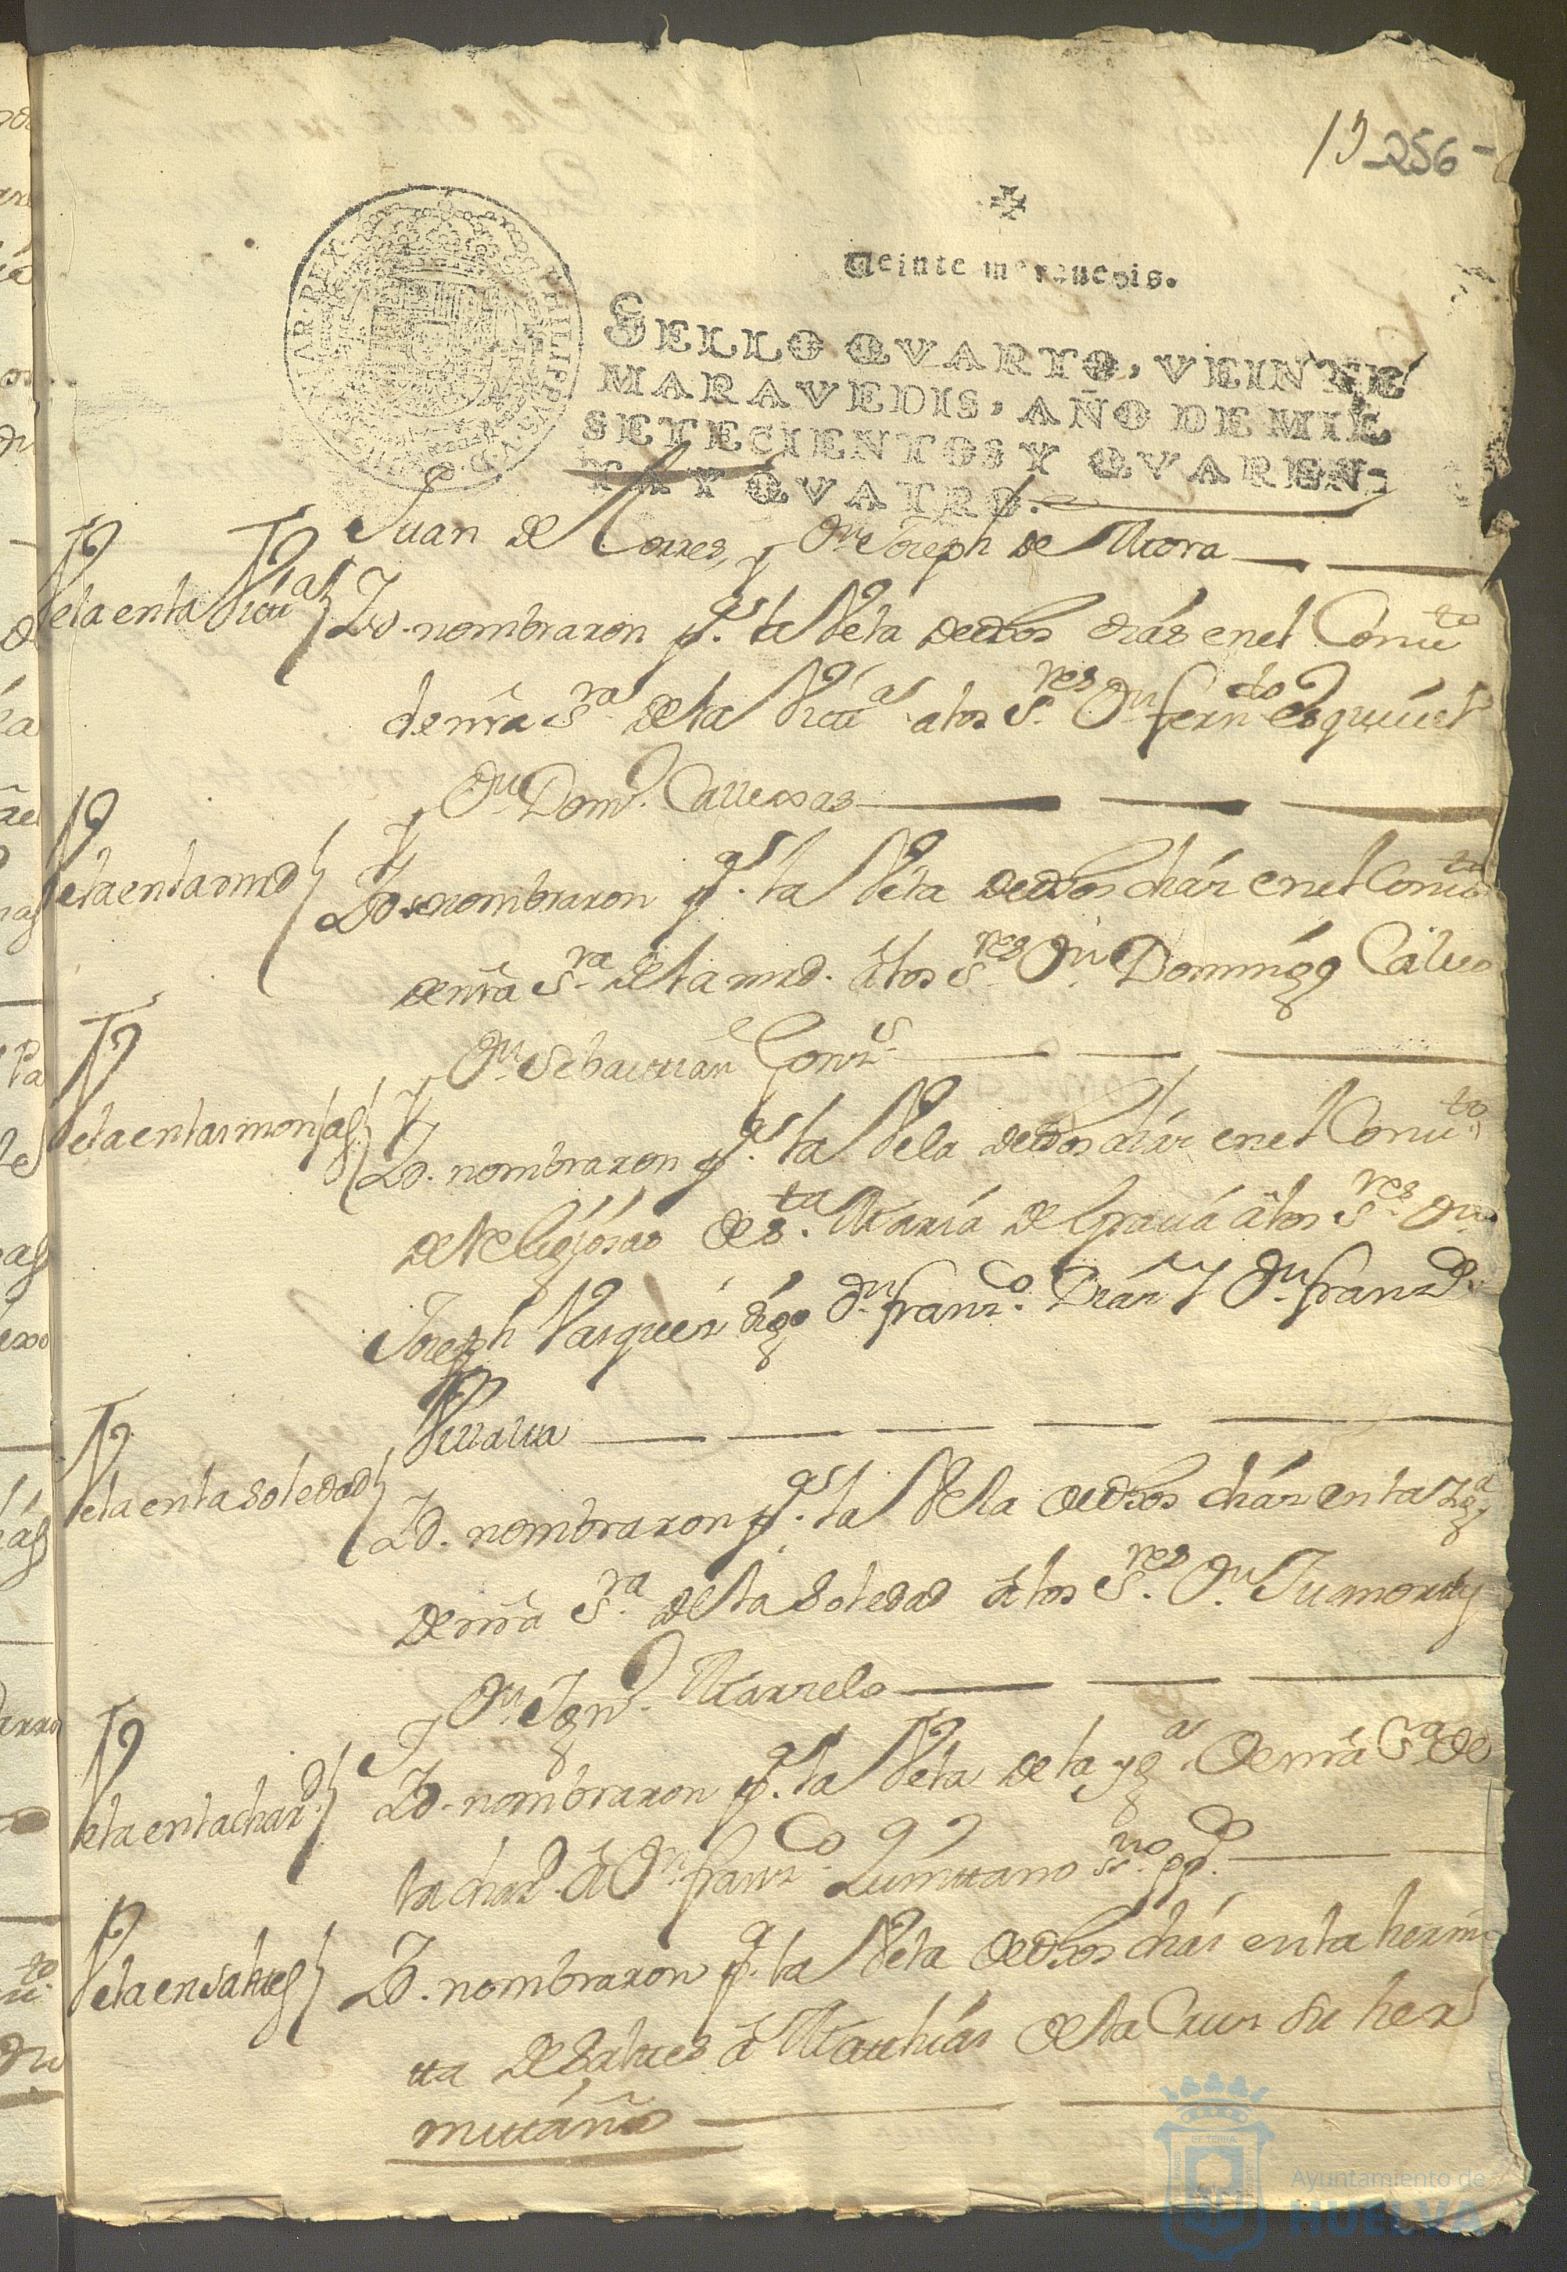 13 -256-
Veinte marauedis.
SELLO QVARTO, VEINTE
MARAVEDIS, AÑO DE MIL
SETECIENTOS Y QVAREN-
TA Y QVATRO.
Juan de Torres, y Dn Joseph de Mora
Vela en la Victa Yd. nombraron pa la Vela de dhos dias en el Convto
de nra Sra de la Victa a los Sres Dn ferndo esquivel
y Dn Domo Callexas
Vela en la mrd Yd. nombraron pa la Vela de dhos dias en el Convto
de nra Sra de la mrd. â los Sres Dn Domingo Calvo
y Dn Sebastian
Vela en las monjas Yd. nombraron pa la Vela de dhos dias en el Convto
de Religiosas de Sta Maria de Gracia â los Sres Dn
Joseph Vasquez digo Dn franco Dias y Dn franco
Villalva
Vela en la Soledad Yd. nombraron pa la Vela de dhos dias en la Yga
de nra Sra de la Soledad â los Sres Dn
y Dn Igno Marzelo
Vela en la chard Yd. nombraron pa la Vela de la yga de nra Sa de
la chard â Dn franco Luzuriano sno ppco
Vela en Saltes Yd. nombraron pa la Vela de dhos dias en la hermi
ta de Saltes â Mathias de la Cruz su her
mitaño
Ayuntamiento de
HUELVA